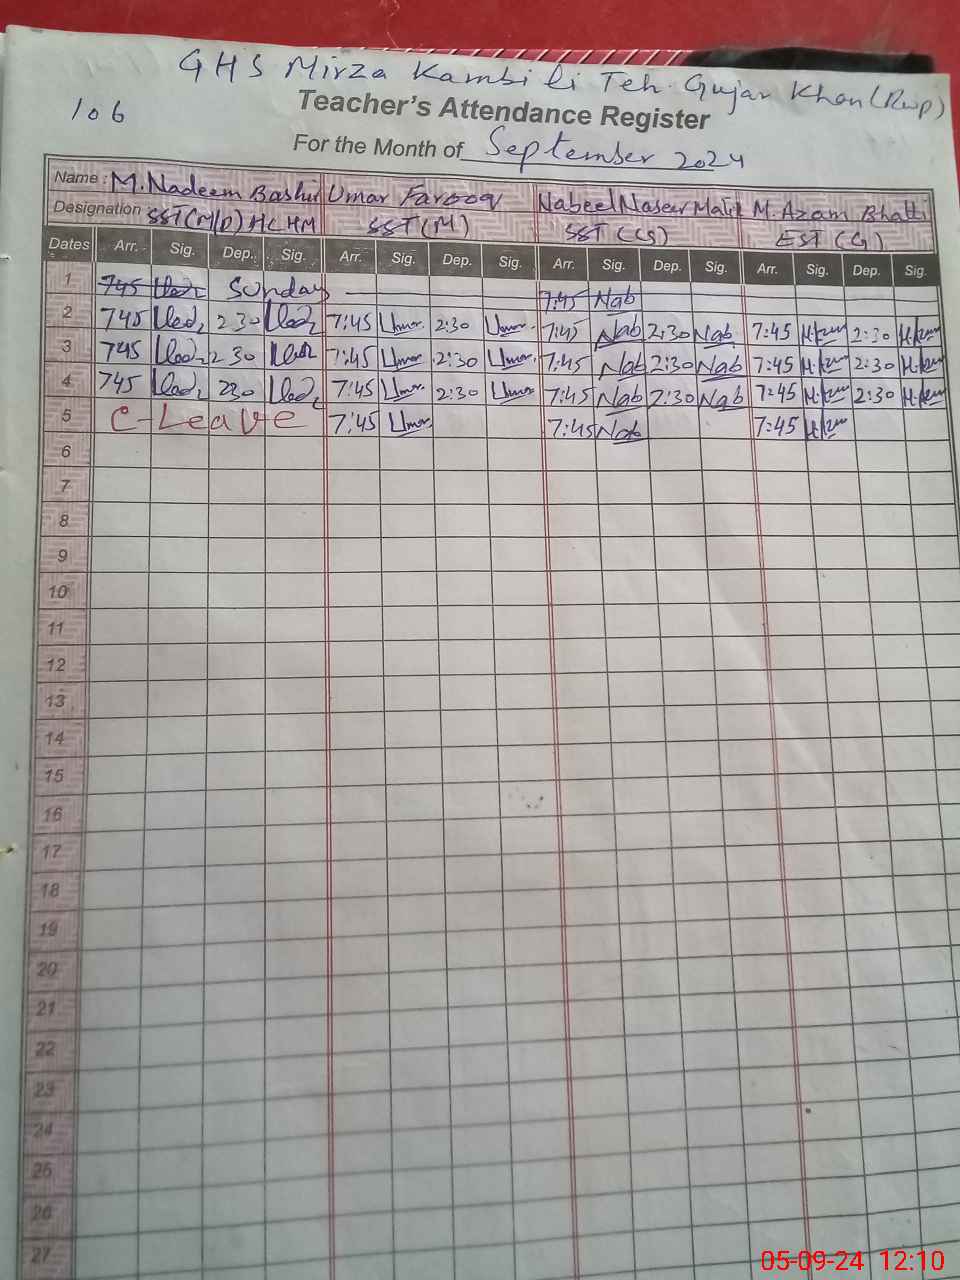 GHS Mirza Kambili Teh. Gujar Khan (Rwp)
106
Teacher's Attendance Register
For the Month of September 2024
Name: M. Nadeem Bashir Umar Farooq Nabeel Naseer Malik M. Azam Bhatti
Designation SST(M/P) HC HM SST(M) SST (CS) EST (G)
Dates Arr. Sig. Dep. Sig. Arr. Sig. Dep. Sig. Arr. Sig. Dep. Sig. Arr. Sig. Dep. Sig.
1 745 Sunday 7:45 Nab
2 745 230 7:45 Umar 2:30 Umar 7:45 Nab 2:30 Nab 7:45 2:30
3 745 230 7:45 Umar 2:30 Umar 7:45 Nab 2:30 Nab 7:45 2:30
4 745 230 7:45 Umar 2:30 Umar 7:45 Nab 2:30 Nab 7:45 2:30
5 C-Leave 7:45 Umar 7:45 Nab 7:45
6
7
8
9
10
11
12
13
14
15
16
17
18
19
20
21
22
23
24
25
26
27
05-09-24 12:10